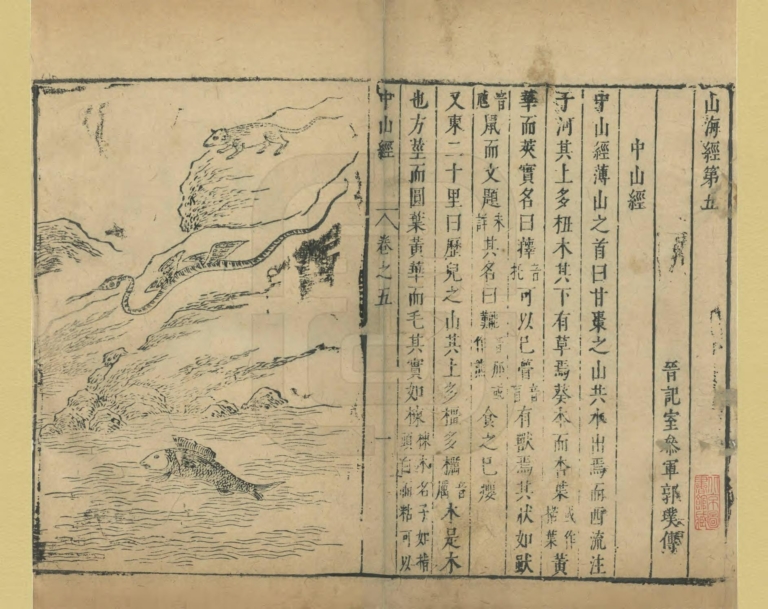 山海經第五
晉記室參軍郭璞傳
中山經
中山經薄山之首曰甘棗之山共水出焉而西流注
于河其上多杻木其下有草焉葵本而杏葉或作楛葉黃
華而莢實名曰籜音托可以已瞢音盲有獸焉其狀如
鼠而文題未詳其名曰食之已癭
又東二十里曰歷兒之山其上多橿多櫔音厲木是木
也方莖而圓葉黃華而毛其實如楝楝木名子如指頭白而粘可以
中山經 卷之五 一